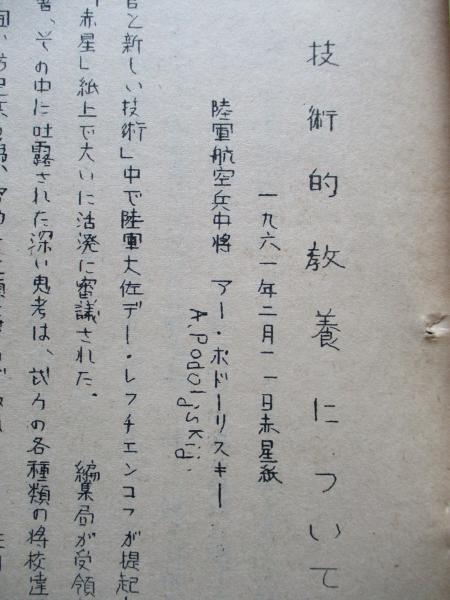 技術的教養について
一九六一年二月一一日赤星紙
陸軍航空兵中将 アー・ポドーリスキー
A. Podol'skij.
官と新しい技術」中で陸軍大佐デー・レフチェンコフが提起し
赤星」紙上で大いに活溌に審議された。 編集局が受領
その中に吐露された深い思考は、我々の各種類の将校達